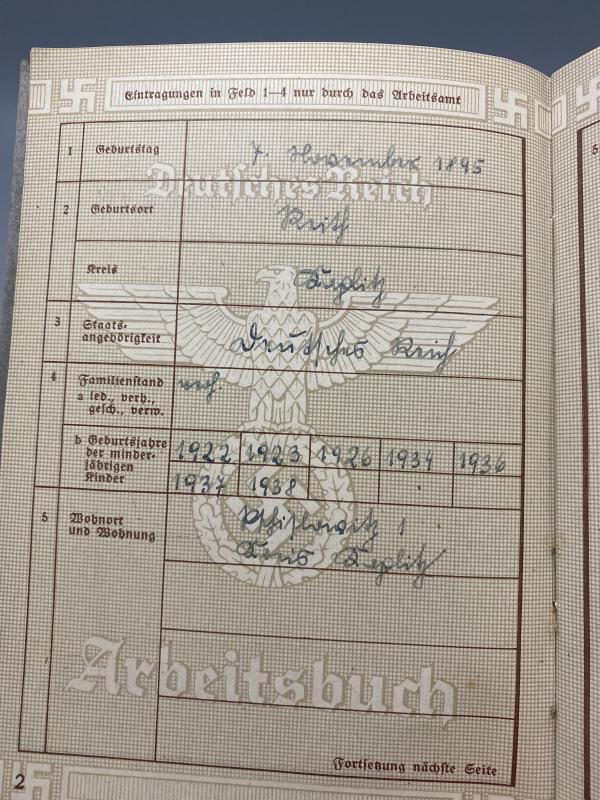 Eintragungen in Feld 1—4 nur durch das Arbeitsamt
1 Geburtstag 7. November 1895
Deutsches Reich
2 Geburtsort
Kreis Teplitz
3 Staats-
angehörigkeit Deutsches Reich
4 Familienstand verh.
a led., verh.,
gesch., verw.
b Geburtsjahre
der minder-
jährigen
Kinder
1922 1923 1926 1934 1936
1937 1938
5 Wohnort
und Wohnung
1
Kreis Teplitz
Arbeitsbuch
Fortsetzung nächste Seite
2
5